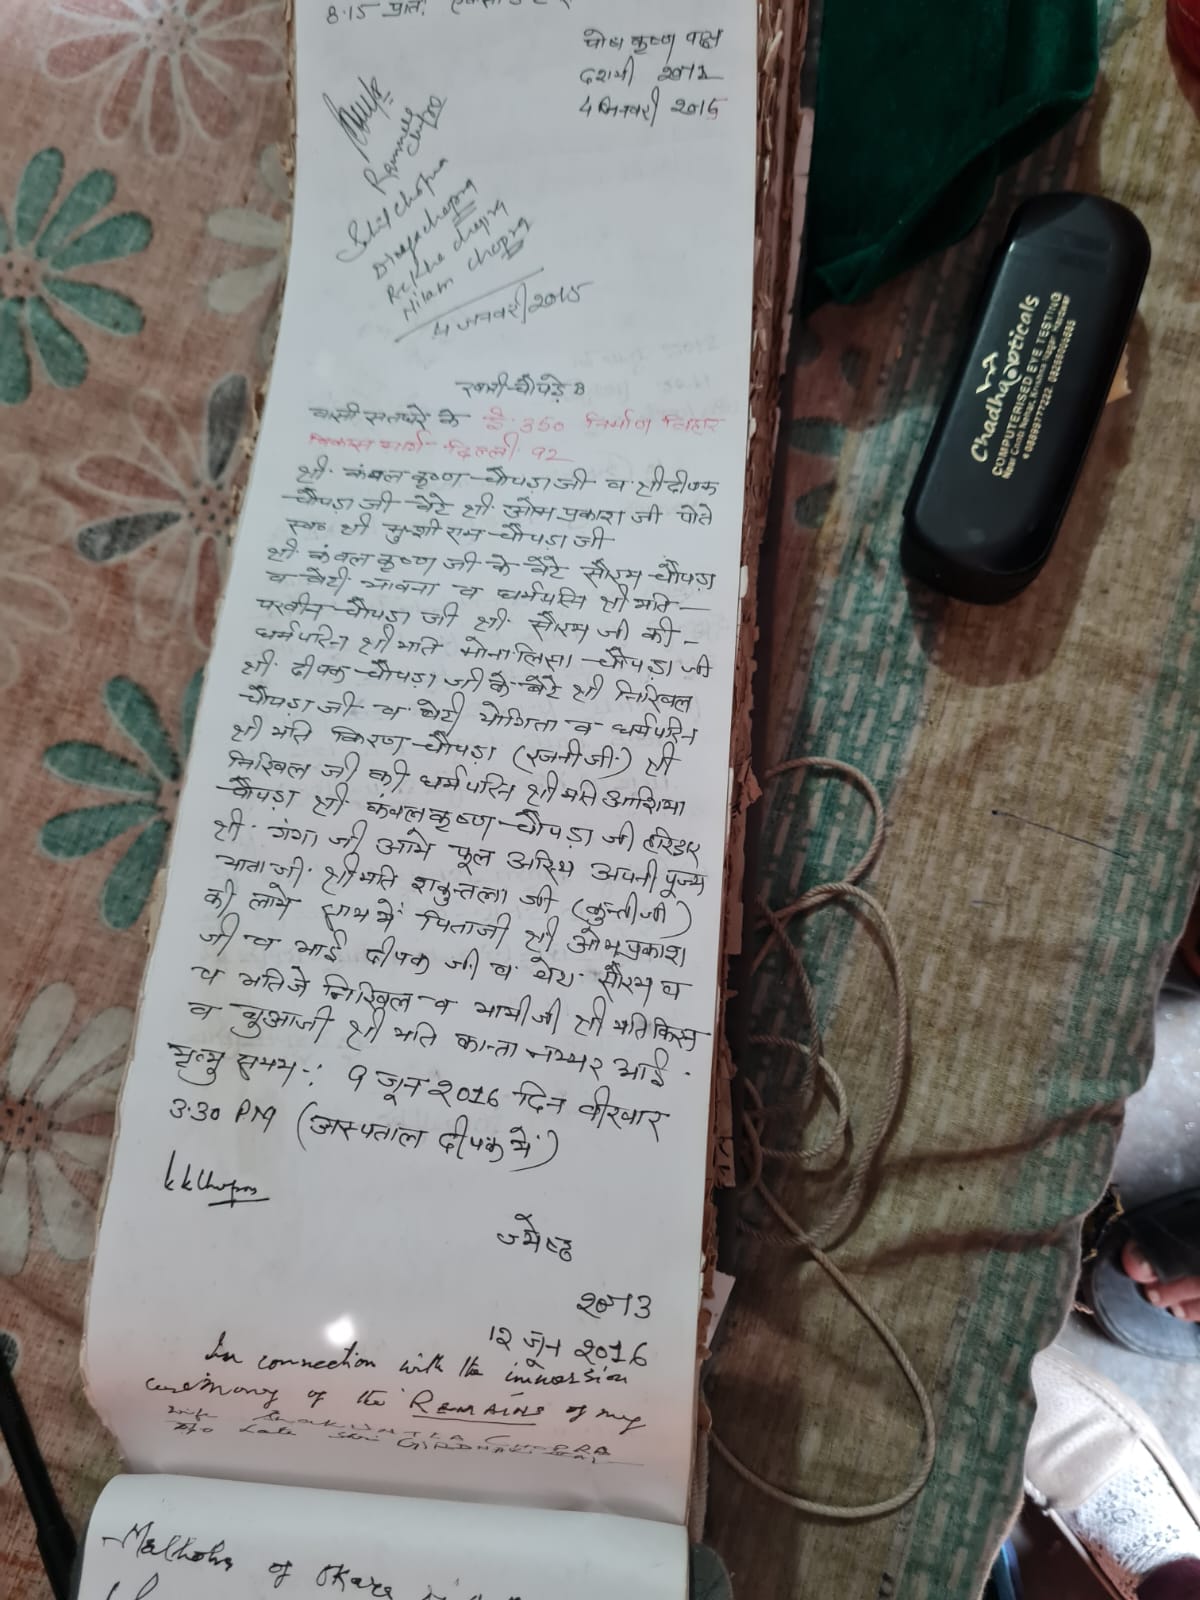 8.15 प्रातः
पोष कृष्ण पक्ष
दशमी 2071
4 जनवरी 2015
Sahil Chopra
Deepa chopra
Rekha chopra
Nilam chopra
4 जनवरी 2015
खत्री-चौपड़े B
वासी सतघरे के ई. 350 निर्माण विहार
विकास मार्ग-दिल्ली. 92
श्री. कंवल कृष्ण-चौपड़ा जी व श्री दीपक
चौपड़ा जी-बेटे श्री. ओम प्रकाश जी पोते
स्व० श्री खुशी राम-चौपड़ा जी
श्री. कंवल कृष्ण जी के बेटे सौरभ-चौपड़ा
व-बेटी भावना व धर्मपत्नि श्री मति-
परवीन-चौपड़ा जी श्री. सौरभ जी की-
धर्मपत्नि श्री मति मोनालिसा-चौपड़ा जी
श्री. दीपक-चौपड़ा जी के-बेटे श्री निखिल
चौपड़ा जी व बेटी योगिता व धर्मपत्नि
श्री मति किरण-चौपड़ा (रजनी जी.) श्री
निखिल जी की धर्मपत्नि श्री मति आशिमा
चौपड़ा श्री कंवल कृष्ण-चौपड़ा जी हरिद्वार
श्री. गंगा जी आये फूल अस्थि अपनी पूज्य
माता जी. श्री मति शकुन्तला जी (कुन्ती जी)
की लाये साथ में पिताजी श्री ओम प्रकाश
जी व भाई दीपक जी व. बेटा. सौरभ व
व भतिजे निखिल व भाभी जी श्री मति किरण
व बुआजी श्री मति कान्ता नय्यर आई.
मृत्यु समय-: 9 जून 2016 दिन वीरवार
3.30 PM (अस्पताल दीपक में)
KKChopra
ज्येष्ठ
2073
12 जून 2016
In connection with the immersion
ceremony of the REMAINS of my
wife SHAKUNTLA CHOPRA
D/O Late Shri GIRDHARI
Malhotra of Okara
Chadha opticals
COMPUTERISED EYE TESTING
Near Chob Nehar, Krishna Nagar Haridwar